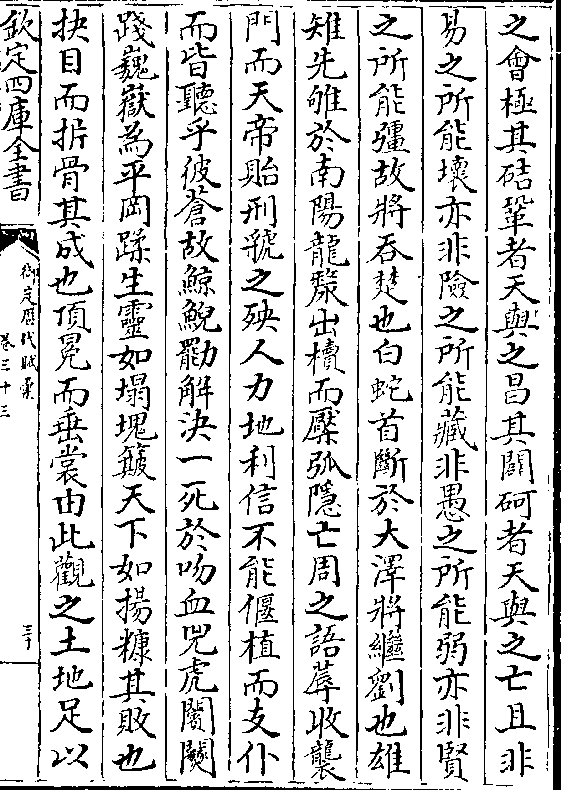 之會極其硈鞏者天與之昌其闢砢者天與之亡且非
易之所能壞亦非險之所能藏非愚之所能弱亦非賢
之所能彊故將吞楚也白蛇首斷於大澤將繼劉也雄
雉先雊於南陽龍漦出櫝而檿弧隱亡周之語蓐收襲
門而天帝貽刑虢之殃人力地利信不能偃植而支仆
而皆聽乎彼蒼故鯨鯢勸解決一死於吻血兕虎鬩
踐巍嶽為平岡蹂生靈如塌塊簸天下如揚糠其敗也
抉目而折骨其成也頂冕而垂裳由此觀之土地足以
欽定四庫全書
御定歷代賦彙
卷三十三
三十